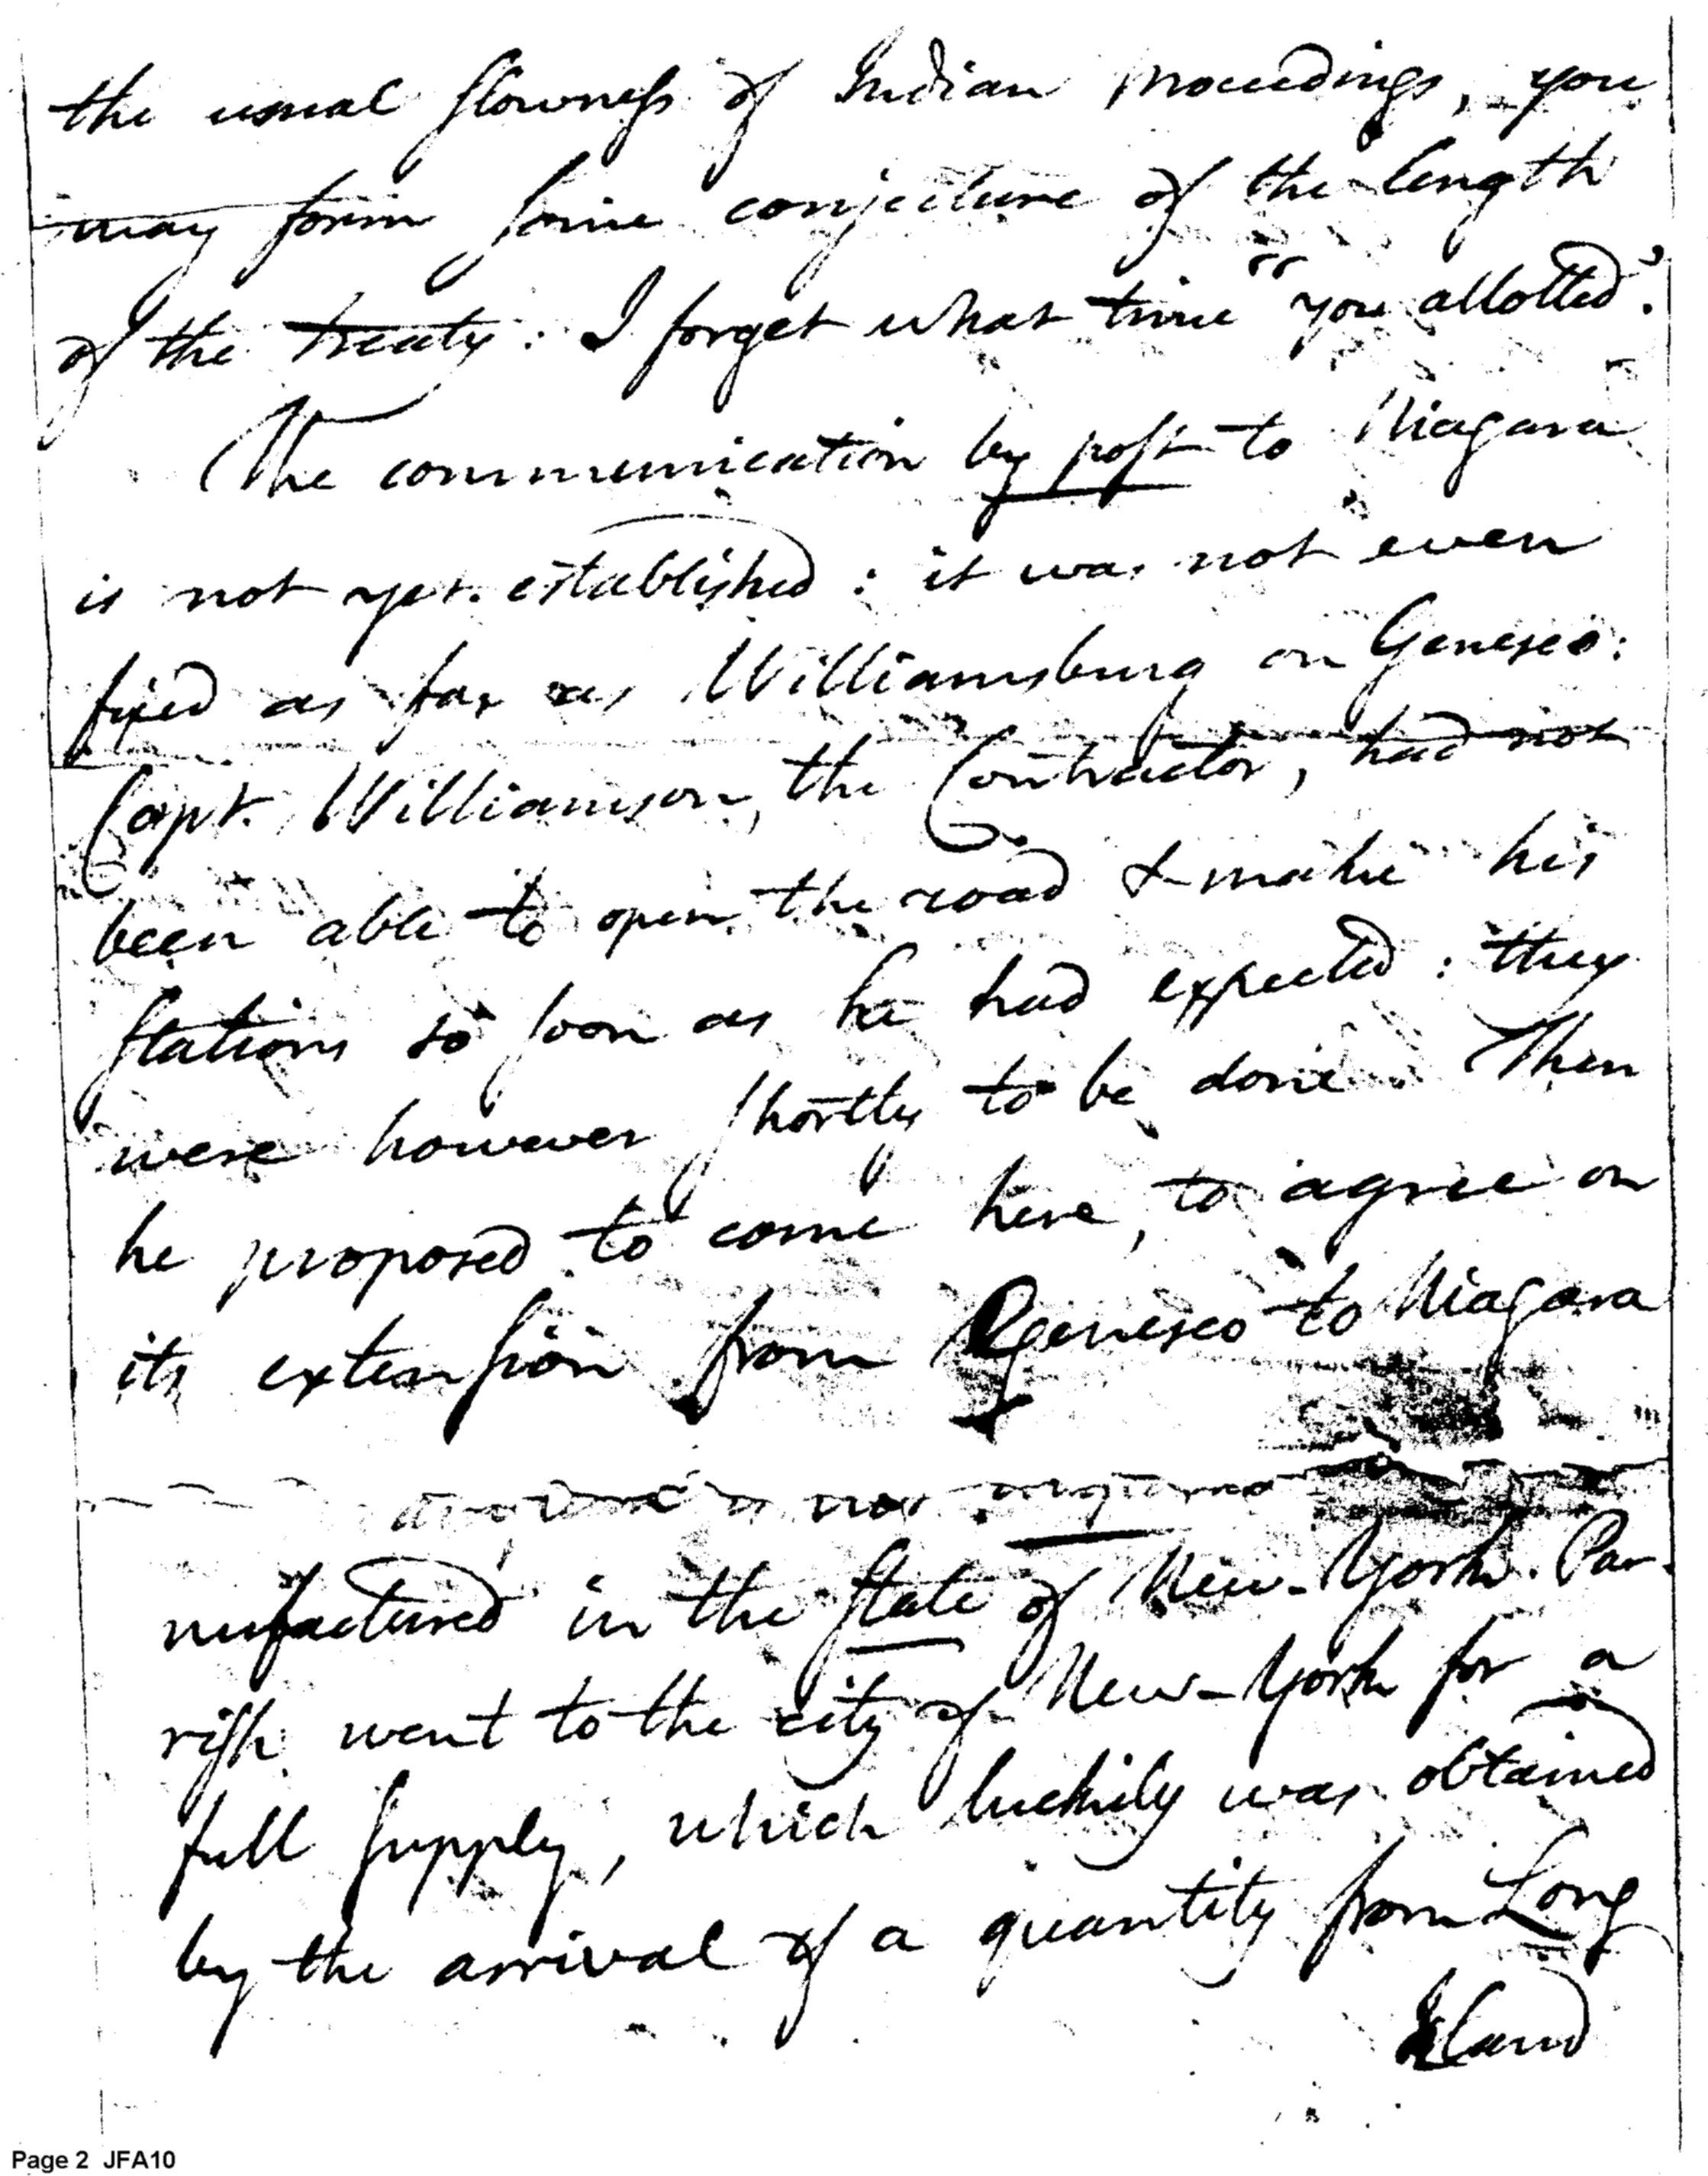 the usual slowness of Indian proceedings, you
may form some conjecture of the length
of the treaty: I forget what time "you allotted."
The communication by post to Niagara
is not yet established: it was not even
fixed as far as Williamsburg on Geneseo:
Capt. Williamson, the Contractor, had not
been able to open the road & make his
stations so soon as he had expected: they
were however shortly to be done. Then
he proposed to come here, to agree on
its extension from Geneseo to Niagara
is not
nufactured in the state of New-York. Par-
rish went to the city of New-York for a
full supply, which luckily was obtained
by the arrival of a quantity from Long
Island
Page 2 JFA10